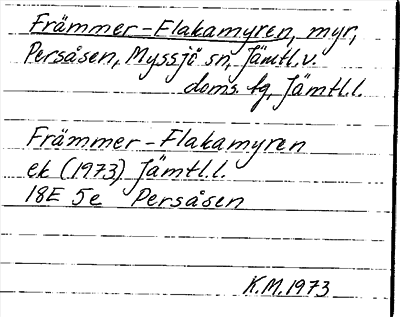 Främmer-Flakamyren, myr,
Persåsen, Myssjö sn, Jämtl.v.
doms fg, Jämtl.l.
Främmer-Flakamyren
ek (1973) Jämtl.l.
18E 5e Persåsen
K.M.1973